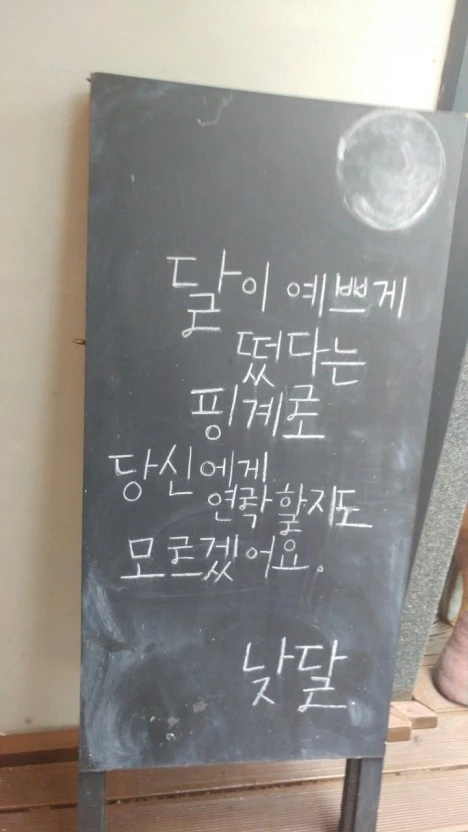 달이 예쁘게
떴다는
핑계로
당신에게
연락할지도
모르겠어요.
낮달.